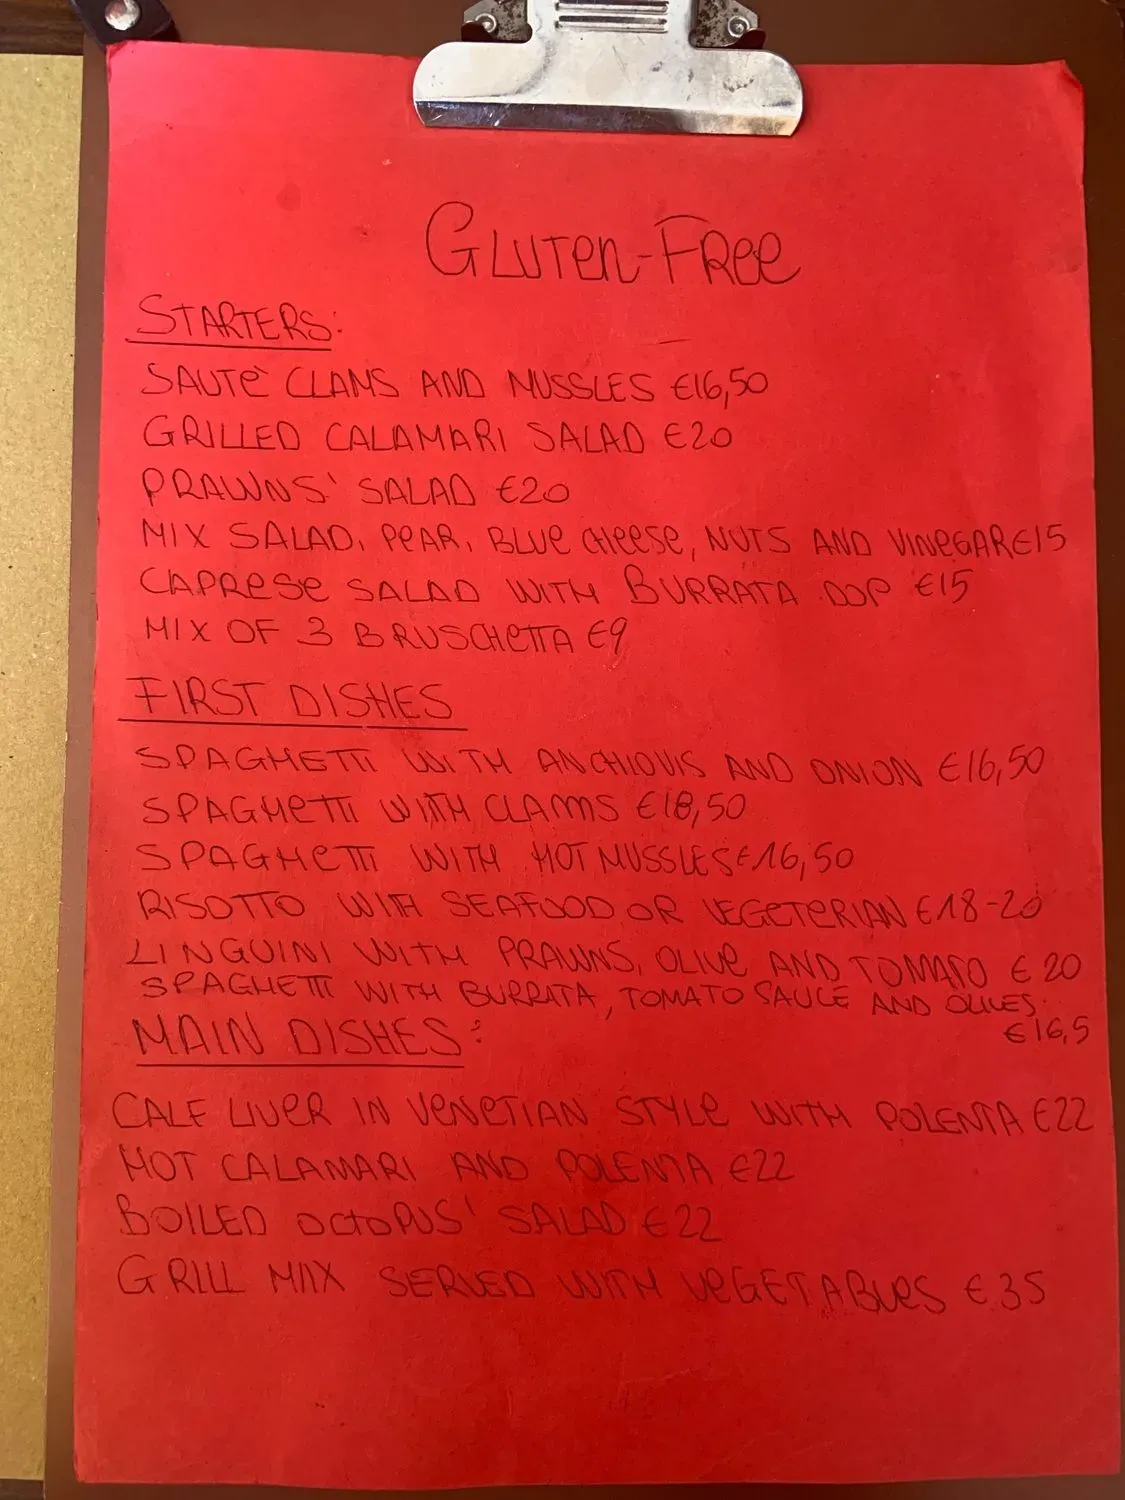 GLUTEN-FREE
STARTERS:
SAUTÈ CLAMS AND MUSSLES €16,50
GRILLED CALAMARI SALAD €20
PRAWNS' SALAD €20
MIX SALAD, PEAR, BLUE CHEESE, NUTS AND VINEGAR €15
CAPRESE SALAD WITH BURRATA DOP €15
MIX OF 3 BRUSCHETTA €9
FIRST DISHES
SPAGHETTI WITH ANCHIOVIS AND ONION €16,50
SPAGHETTI WITH CLAMS €18,50
SPAGHETTI WITH HOT MUSSLES €16,50
RISOTTO WITH SEAFOOD OR VEGETERIAN €18-20
LINGUINI WITH PRAWNS, OLIVE AND TOMATO €20
SPAGHETTI WITH BURRATA, TOMATO SAUCE AND OLIVES
€16,5
MAIN DISHES:
CALF LIVER IN VENETIAN STYLE WITH POLENTA €22
HOT CALAMARI AND POLENTA €22
BOILED OCTOPUS' SALAD €22
GRILL MIX SERVED WITH VEGETABLES €35